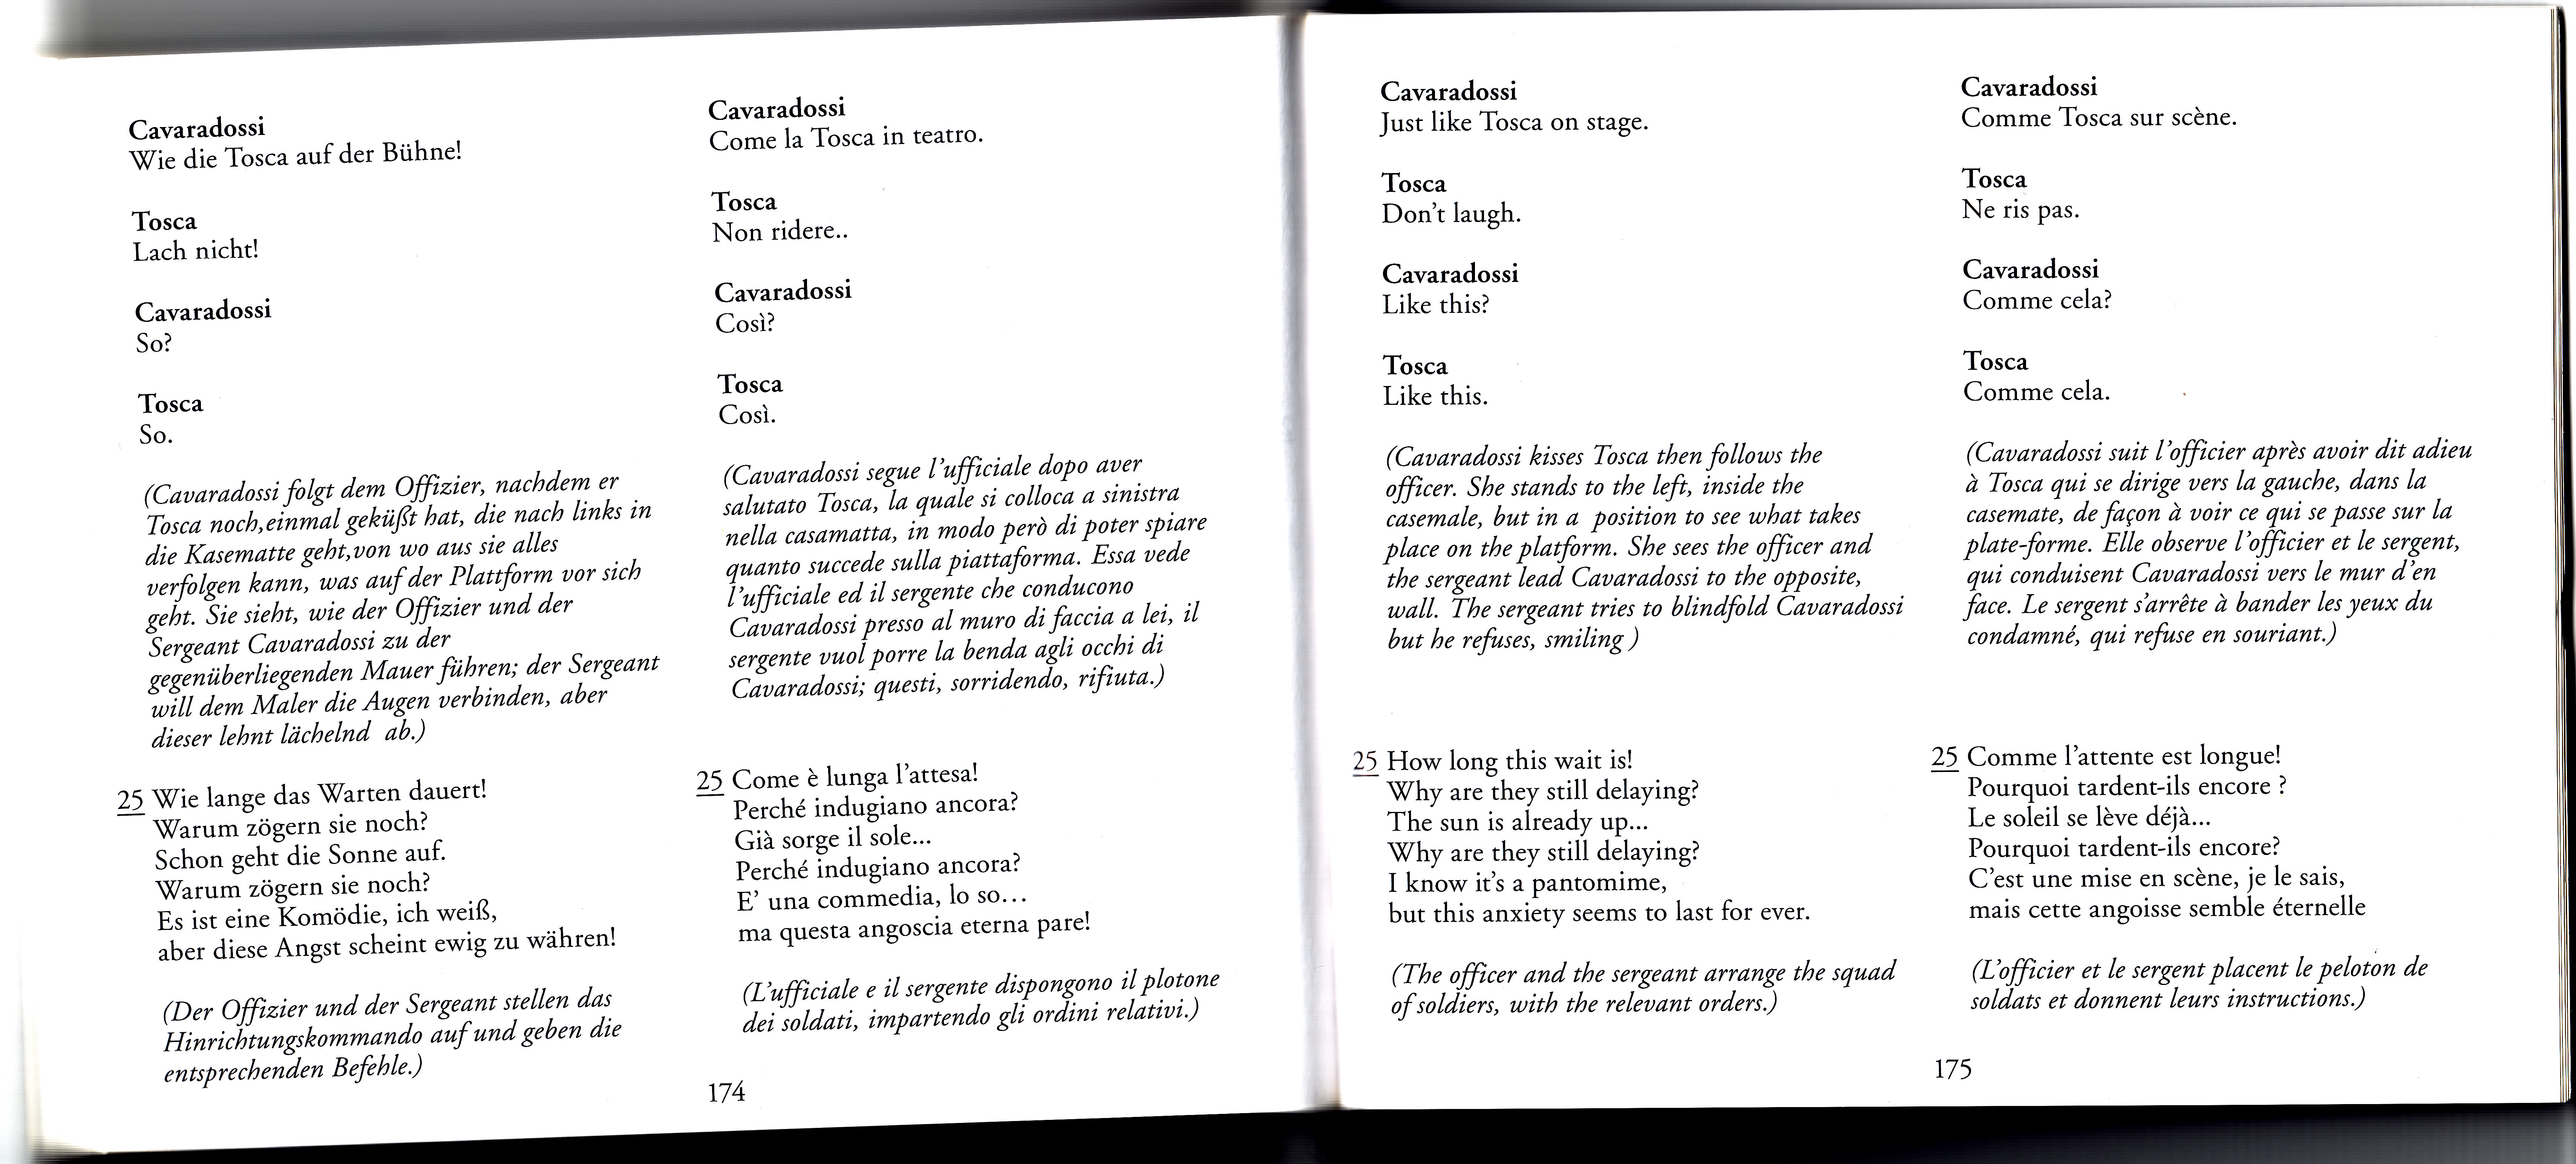 Cavaradossi
Wie die Tosca auf der Bühne!
Tosca
Lach nicht!
Cavaradossi
So?
Tosca
So.
(Cavaradossi folgt dem Offizier, nachdem er
Tosca noch,einmal geküßt hat, die nach links in
die Kasematte geht,von wo aus sie alles
verfolgen kann, was auf der Plattform vor sich
geht. Sie sieht, wie der Offizier und der
Sergeant Cavaradossi zu der
gegenüberliegenden Mauer führen; der Sergeant
will dem Maler die Augen verbinden, aber
dieser lehnt lächelnd ab.)
25 Wie lange das Warten dauert!
Warum zögern sie noch?
Schon geht die Sonne auf.
Warum zögern sie noch?
Es ist eine Komödie, ich weiß,
aber diese Angst scheint ewig zu währen!
(Der Offizier und der Sergeant stellen das
Hinrichtungskommando auf und geben die
entsprechenden Befehle.)
Cavaradossi
Come la Tosca in teatro.
Tosca
Non ridere..
Cavaradossi
Così?
Tosca
Così.
(Cavaradossi segue l'ufficiale dopo aver
salutato Tosca, la quale si colloca a sinistra
nella casamatta, in modo però di poter spiare
quanto succede sulla piattaforma. Essa vede
l'ufficiale ed il sergente che conducono
Cavaradossi presso al muro di faccia a lei, il
sergente vuol porre la benda agli occhi di
Cavaradossi; questi, sorridendo, rifiuta.)
25 Come è lunga l'attesa!
Perché indugiano ancora?
Già sorge il sole...
Perché indugiano ancora?
E' una commedia, lo so...
ma questa angoscia eterna pare!
(L'ufficiale e il sergente dispongono il plotone
dei soldati, impartendo gli ordini relativi.)
174
Cavaradossi
Just like Tosca on stage.
Tosca
Don't laugh.
Cavaradossi
Like this?
Tosca
Like this.
(Cavaradossi kisses Tosca then follows the
officer. She stands to the left, inside the
casemale, but in a position to see what takes
place on the platform. She sees the officer and
the sergeant lead Cavaradossi to the opposite,
wall. The sergeant tries to blindfold Cavaradossi
but he refuses, smiling )
25 How long this wait is!
Why are they still delaying?
The sun is already up...
Why are they still delaying?
I know it's a pantomime,
but this anxiety seems to last for ever.
(The officer and the sergeant arrange the squad
of soldiers, with the relevant orders.)
Cavaradossi
Comme Tosca sur scène.
Tosca
Ne ris pas.
Cavaradossi
Comme cela?
Tosca
Comme cela.
(Cavaradossi suit l'officier après avoir dit adieu
à Tosca qui se dirige vers la gauche, dans la
casemate, de façon à voir ce qui se passe sur la
plate-forme. Elle observe l'officier et le sergent,
qui conduisent Cavaradossi vers le mur d'en
face. Le sergent s'arrête à bander les yeux du
condamné, qui refuse en souriant.)
25 Comme l'attente est longue!
Pourquoi tardent-ils encore ?
Le soleil se lève déjà...
Pourquoi tardent-ils encore?
C'est une mise en scène, je le sais,
mais cette angoisse semble éternelle
(L'officier et le sergent placent le peloton de
soldats et donnent leurs instructions.)
175